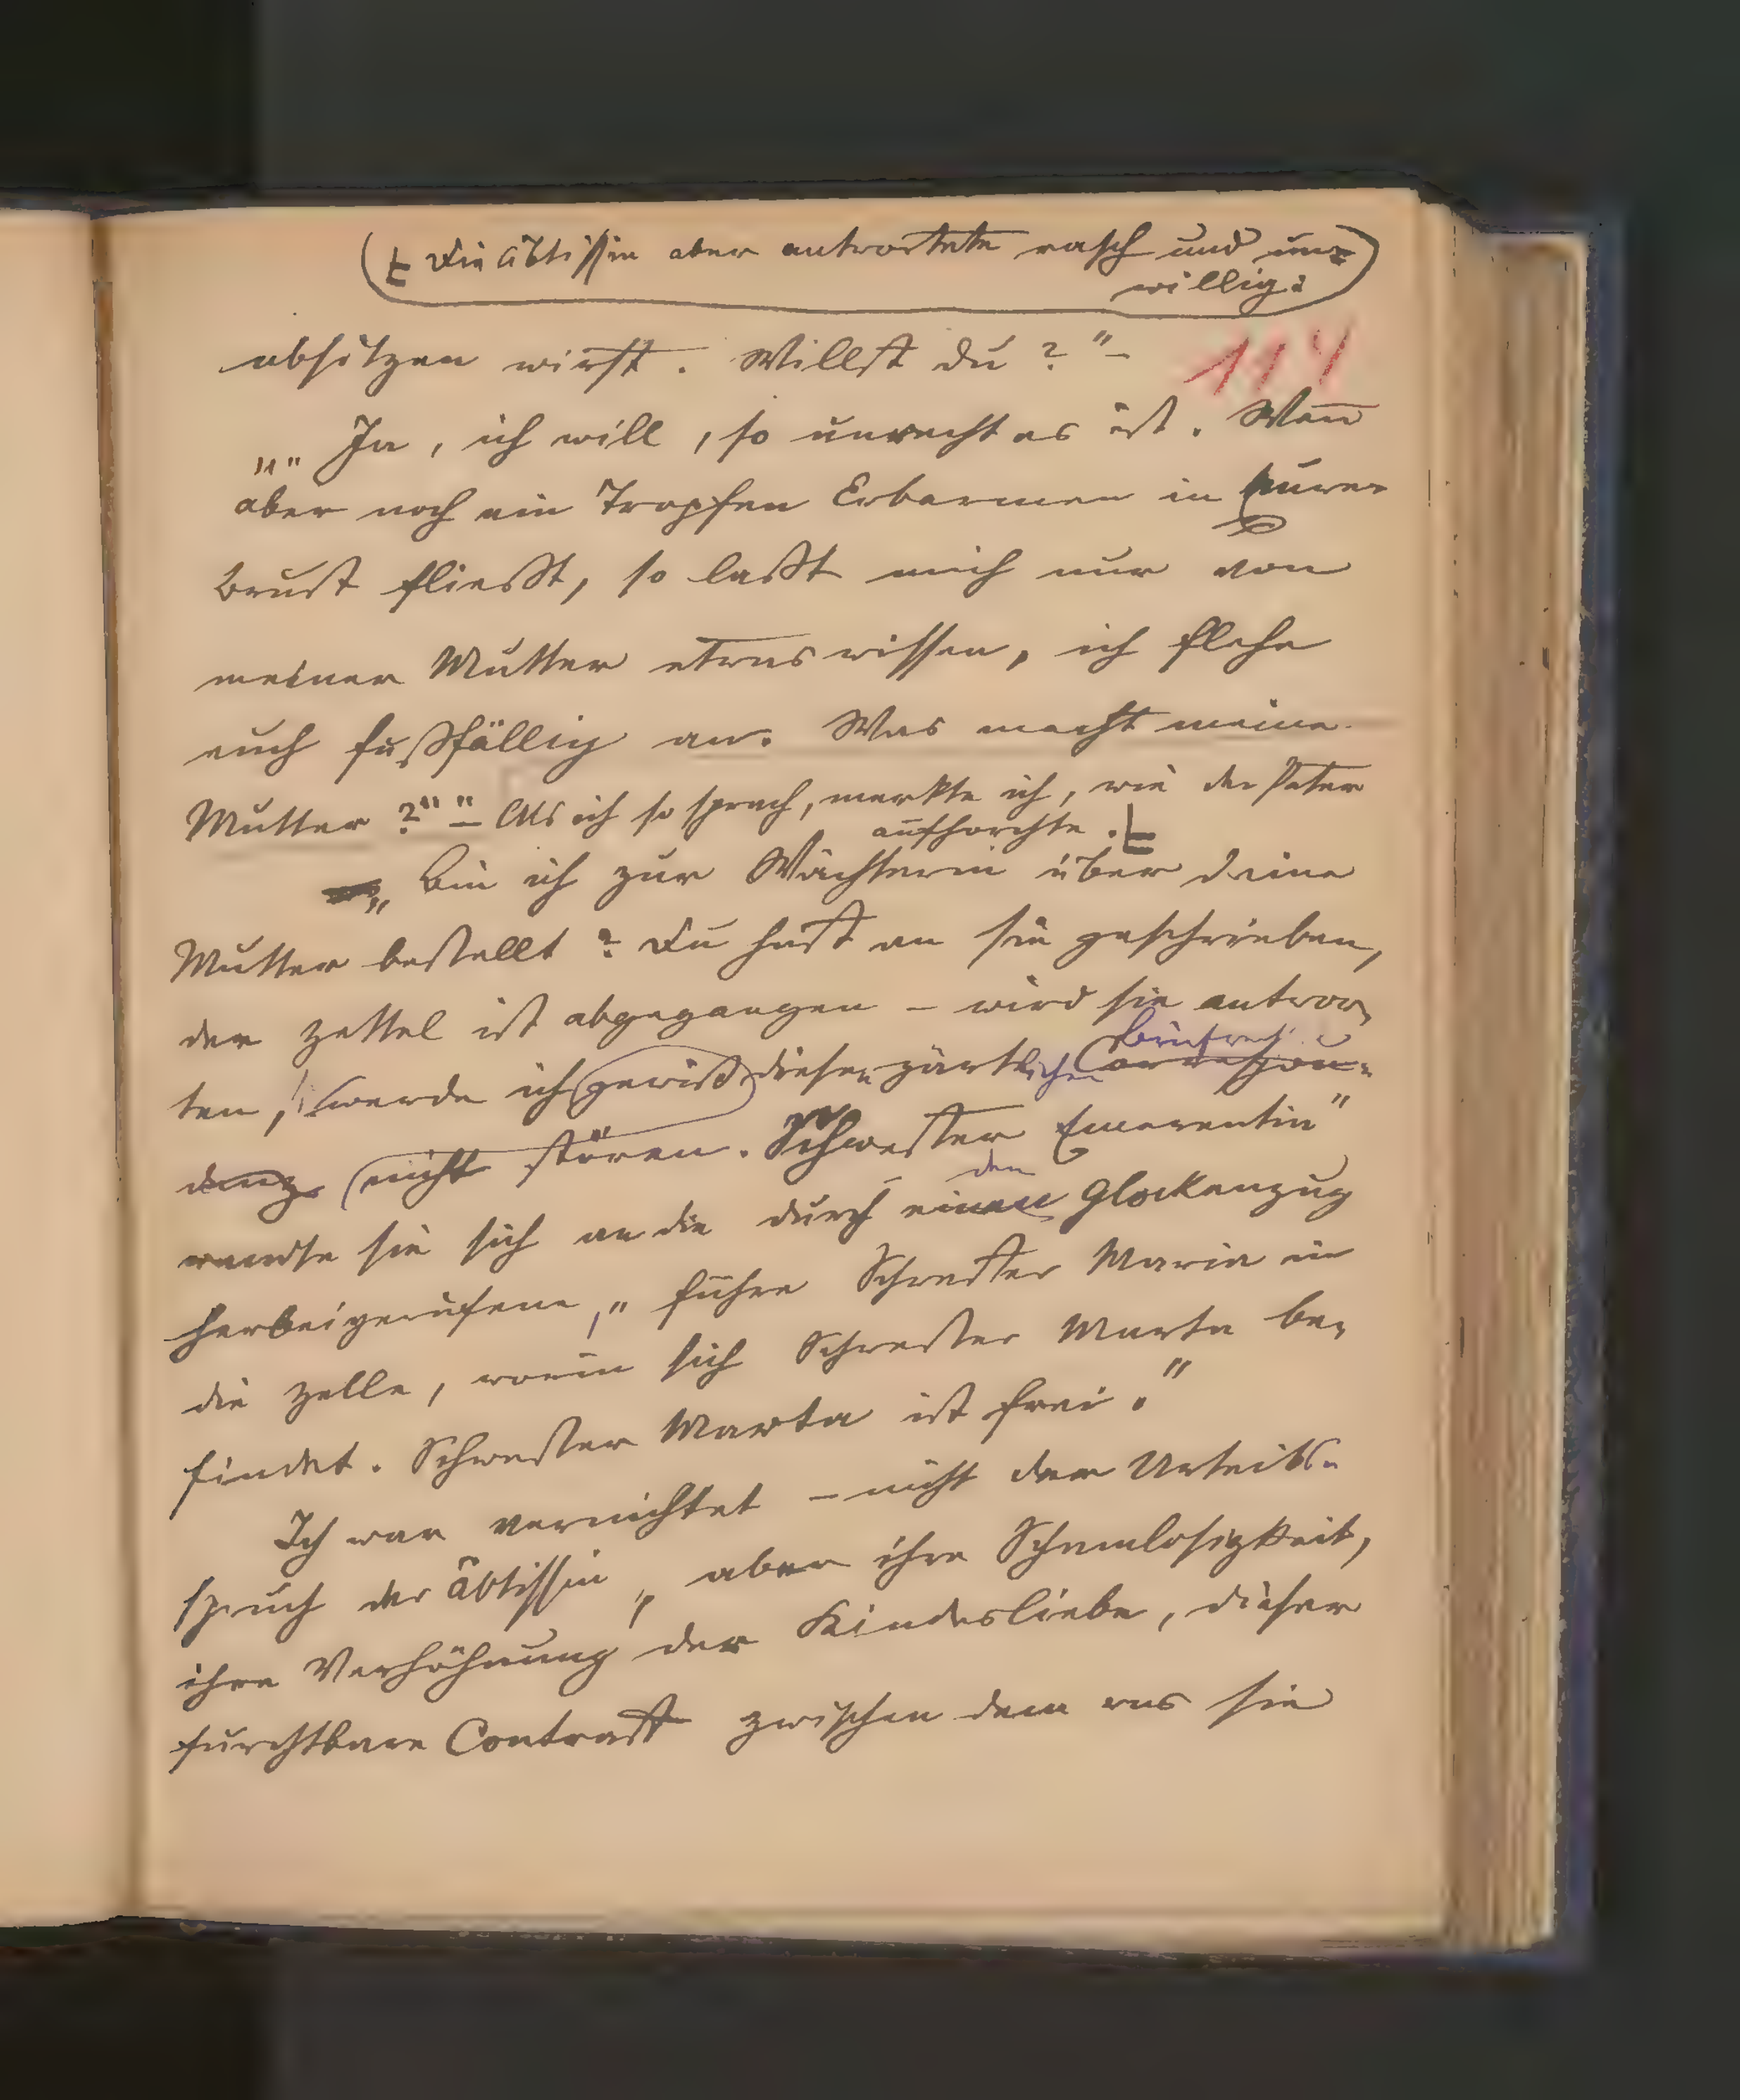 Die Äbtissin aber antwortete rasch und un=
willig:
absitzen wirst. Willst du?" –
114
"" Ja, ich will, so unrecht es ist. Wen̄
aber noch ein Tropfen Erbarmen in Eurer
Brust fließt, so laßt mich nur von
meiner Mutter etwas wissen, ich flehe
euch fußfällig an. Was macht meine
Mutter?"" – Als ich so sprach, merkte ich, wie der Pater
aufhorchte.
„Bin ich zur Wächterin über deine
Mutter bestellt? Du hast an sie geschrieben,
der Zettel ist abgegangen – wird sie antwor=
Briefwechsel
ten, werde ich gewiß diesen zärtlichen Correspon=
denz nicht stören. Schwester Emerentia"
den
wandte sie sich an die durch einen Glockenzug
herbeigerufene, „führe Schwester Maria in
die Zelle, worin sich Schwester Marta be=
findet. Schwester Marta ist frei."
Ich war vernichtet – nicht der Urteils=
spruch der Äbtissin, aber ihre Schamlosigkeit,
ihre Verhöhnung der Kindesliebe, dieser
furchtbare Contrast zwischen dem was sie